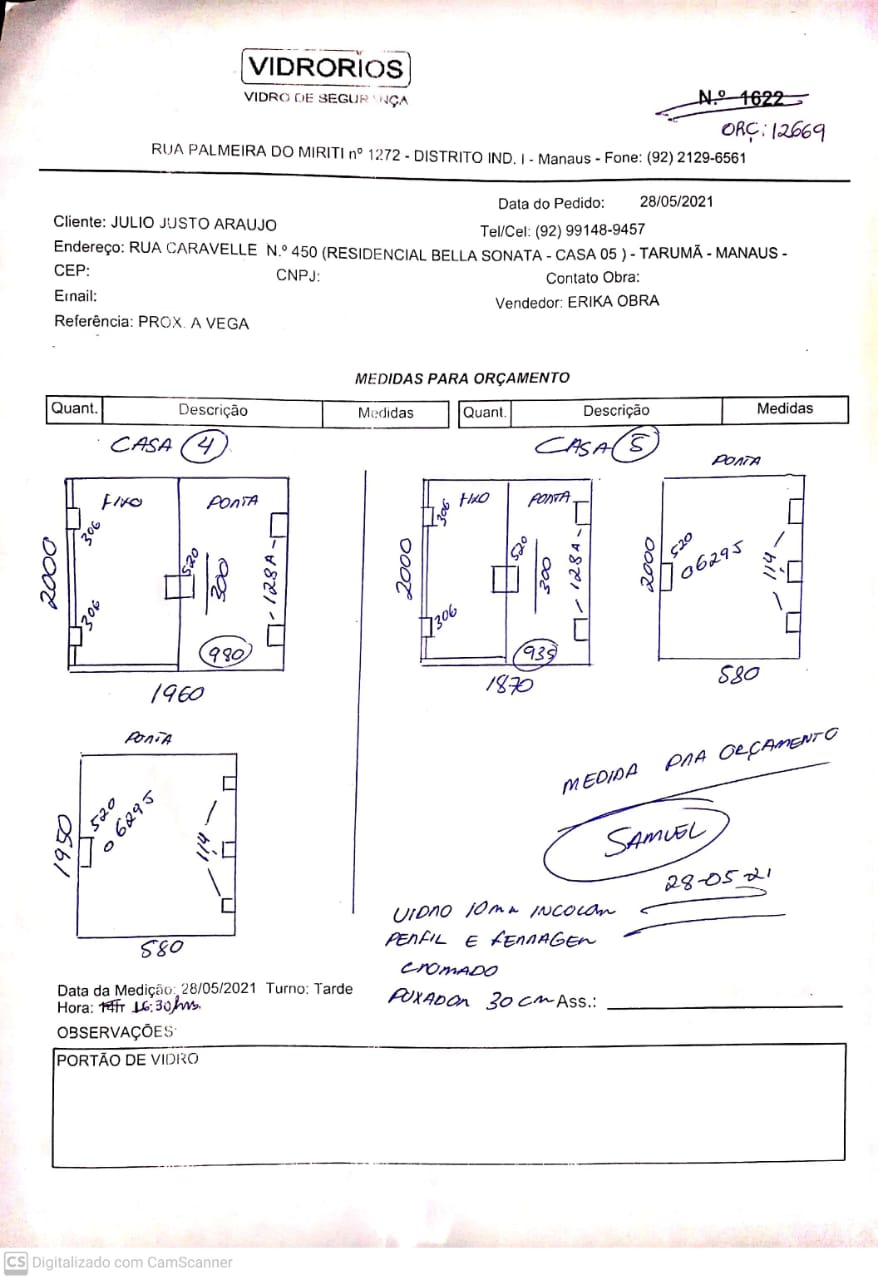 VIDRORIOS
VIDRO DE SEGURANÇA
N.º 1622
ORÇ: 12669
RUA PALMEIRA DO MIRITI nº 1272 - DISTRITO IND. I - Manaus - Fone: (92) 2129-6561
Data do Pedido: 28/05/2021
Cliente: JULIO JUSTO ARAUJO
Tel/Cel: (92) 99148-9457
Endereço: RUA CARAVELLE N.º 450 (RESIDENCIAL BELLA SONATA - CASA 05 ) - TARUMÃ - MANAUS -
CEP: CNPJ: Contato Obra:
Email: Vendedor: ERIKA OBRA
Referência: PROX. A VEGA
MEDIDAS PARA ORÇAMENTO
Quant. Descrição Medidas Quant. Descrição Medidas
CASA 4
FIXO PORTA
306
2000
520
300
128A
306
980
1960
PORTA
1950
520
06295
114
580
CASA 5
FIXO PORTA
306
2000
520
300
128A
306
935
1870
PORTA
2000
520
06295
114
580
MEDIDA PRA ORÇAMENTO
SAMUEL
28-05-21
VIDRO 10mm INCOLOR
PERFIL E FERRAGEM
CROMADO
PUXADOR 30 cm Ass.:
Data da Medição: 28/05/2021 Turno: Tarde
Hora: 16:30/hrs.
OBSERVAÇÕES:
PORTÃO DE VIDRO
CS Digitalizado com CamScanner